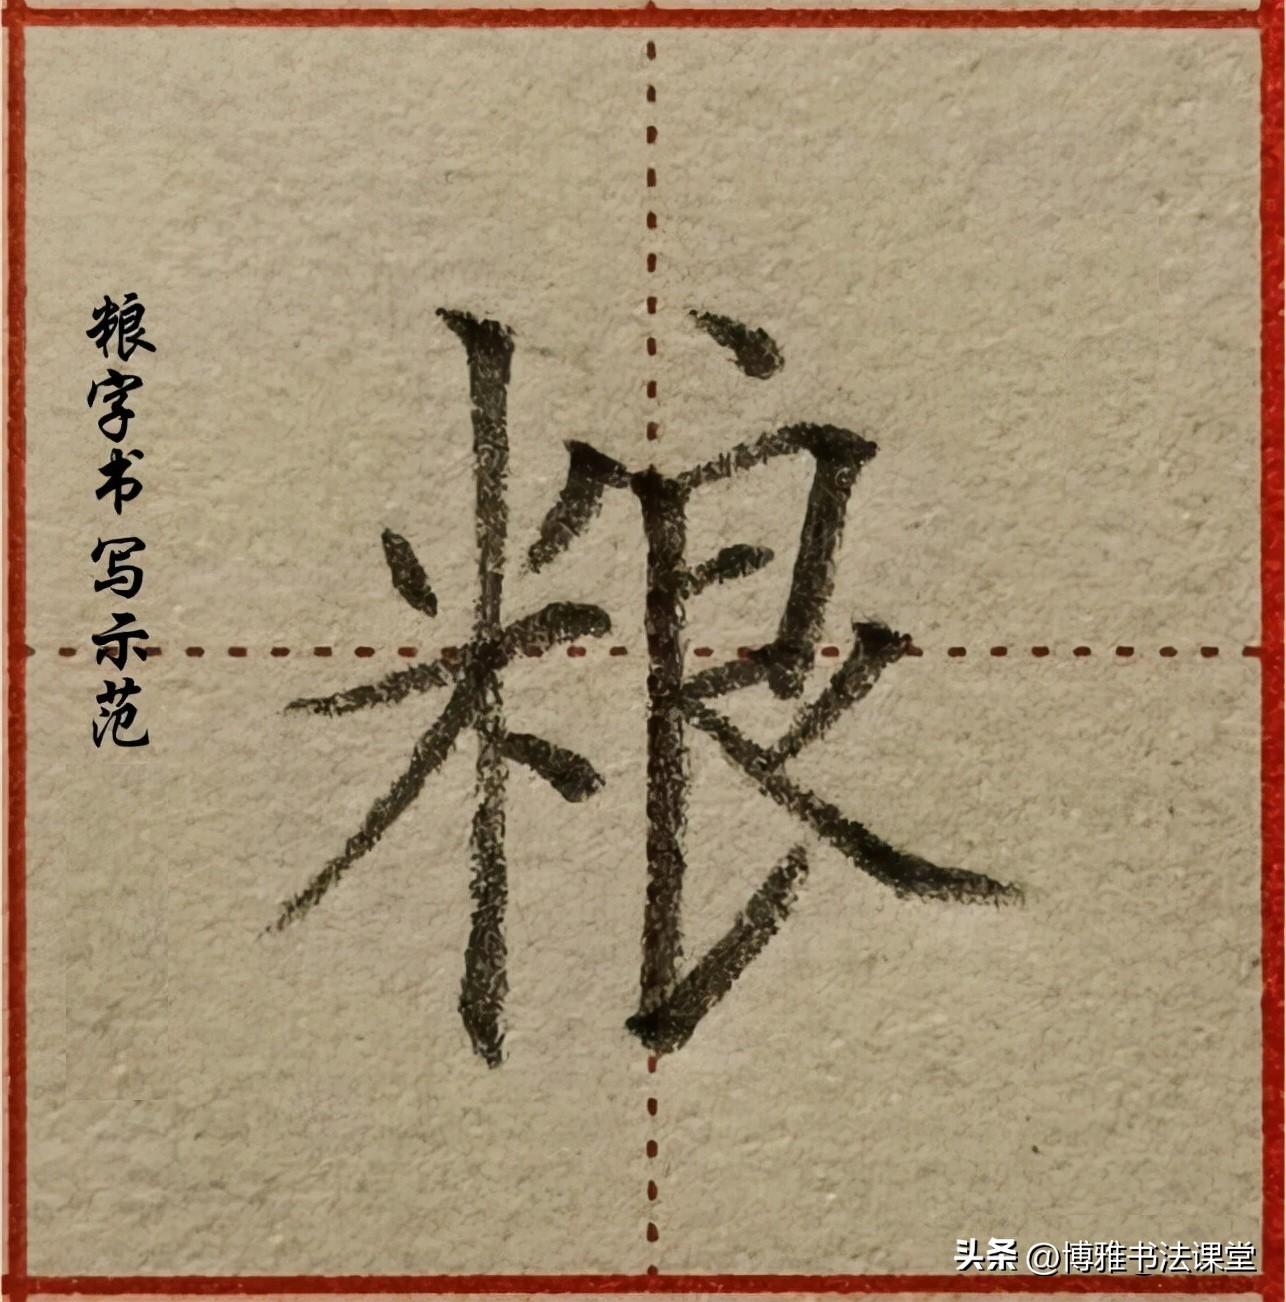 粮字书写示范
粮
头条 @博雅书法课堂